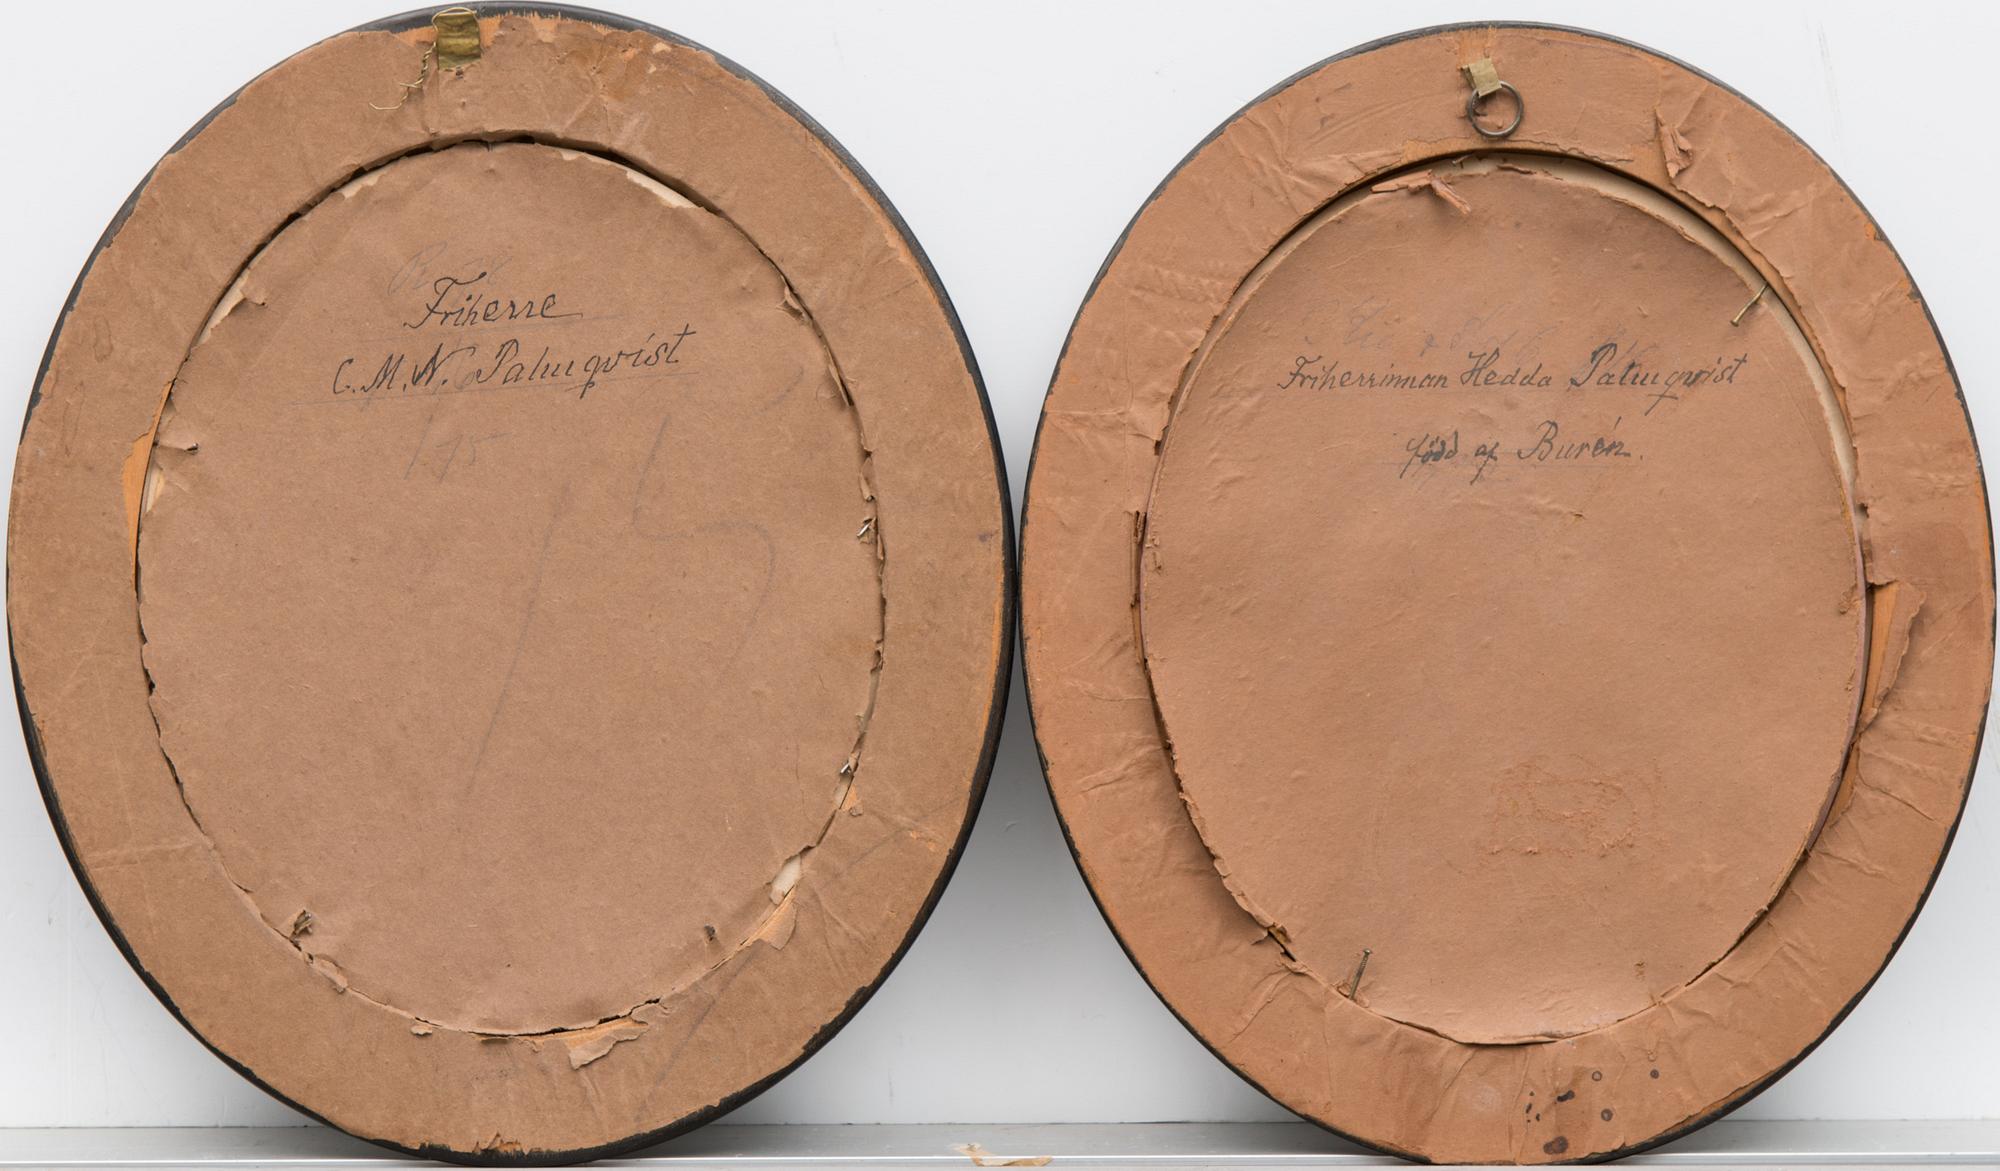 Friherre
C. M. N. Palmqvist
175
Friherrinnan Hedda Palmqvist
född af Burén.